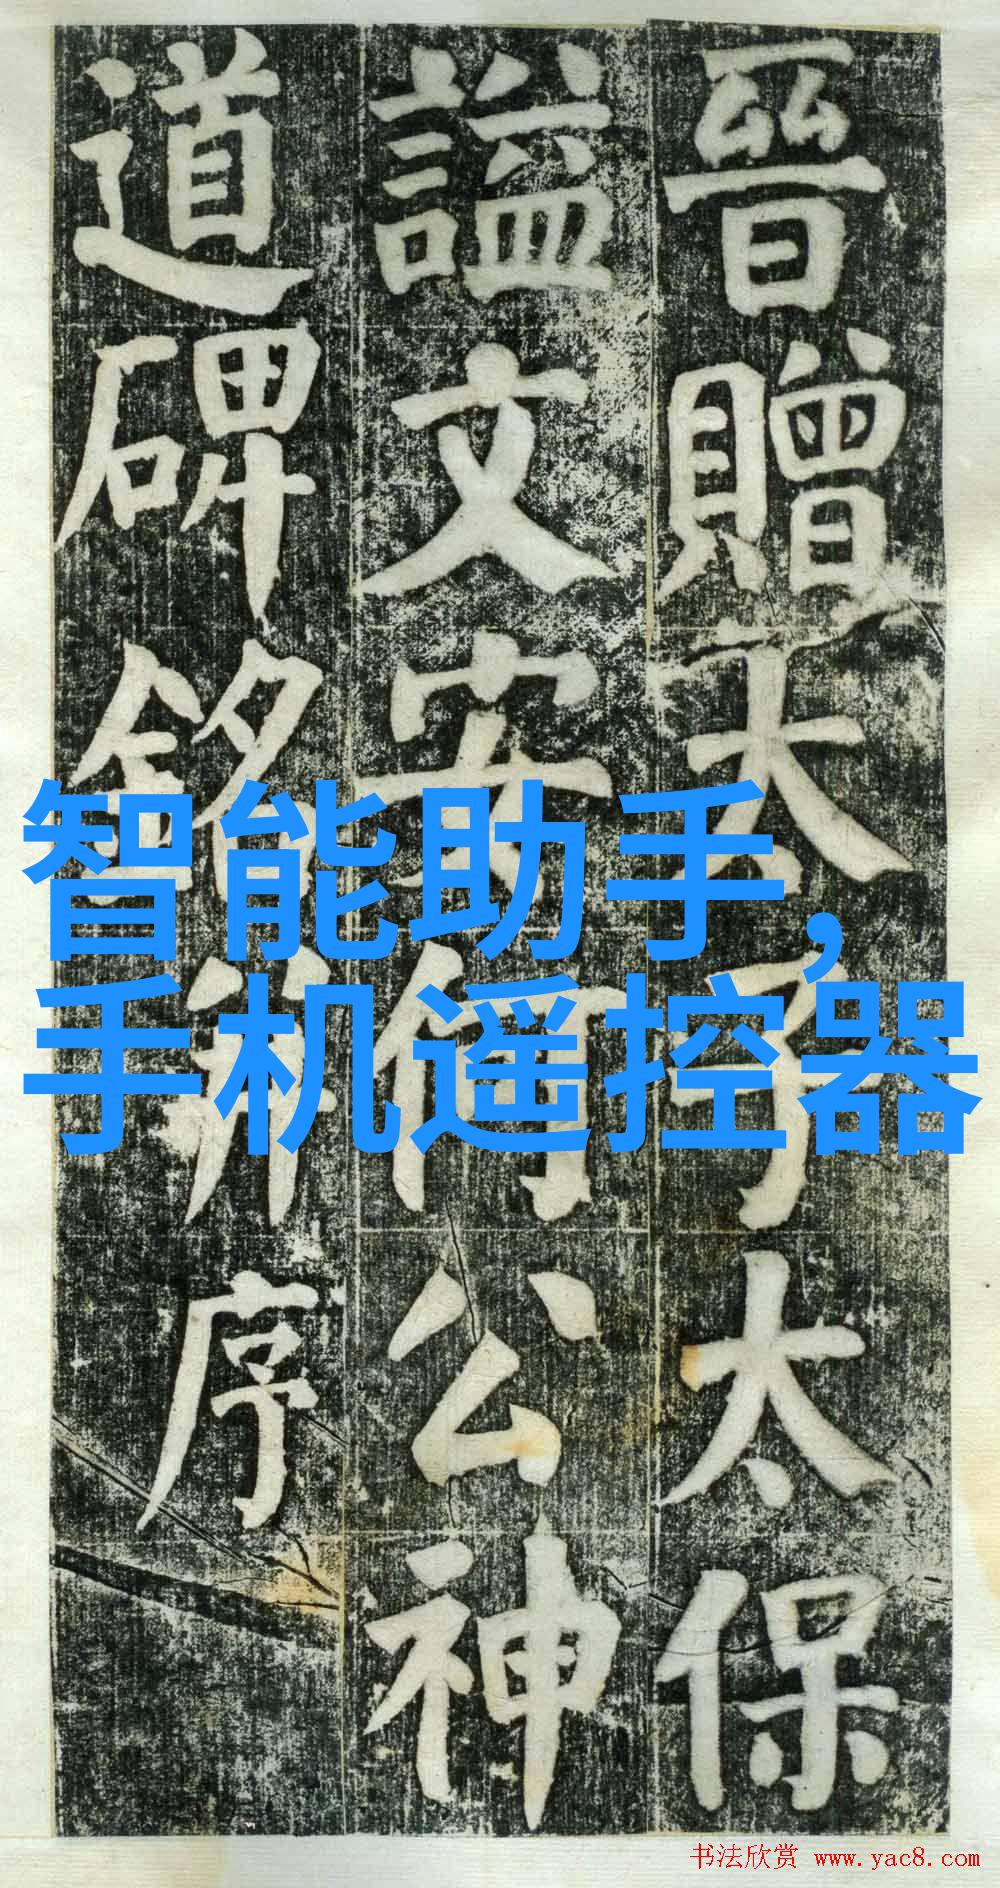 晉贈太子太保
謚文安何公神
道碑銘并序
智能助手,
手机遥控器
书法欣赏 www.yac8.com